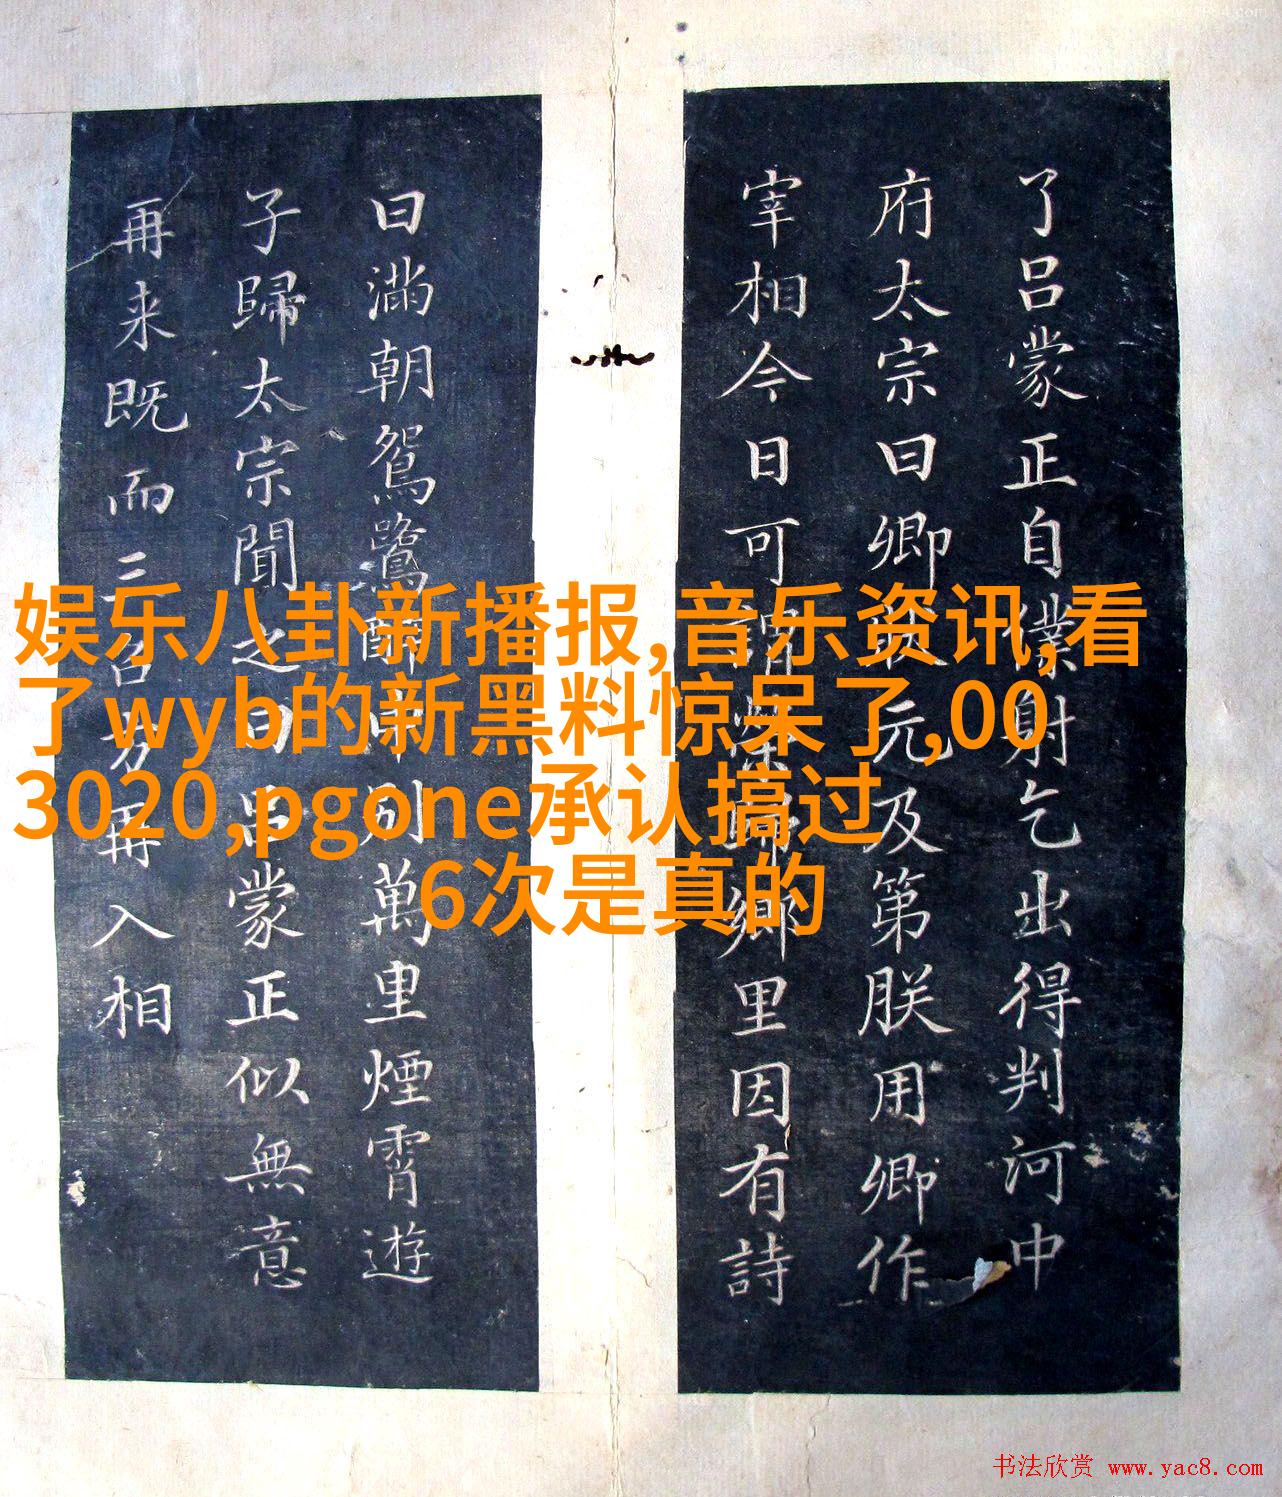 了吕蒙正自僕射乞出得判河中
府太宗曰卿狀元及第朕用卿作
宰相今日可謂榮歸鄉里因有詩
曰滿朝鴛鷺醉中别萬里煙霄遊
子歸太宗聞之曰吕蒙正似無意
再来既而三召方再入相
娱乐八卦新播报,音乐资讯,看
了wyb的新黑料惊呆了,00
3020,pgone承认搞过
6次是真的
书法欣赏 www.yac8.com